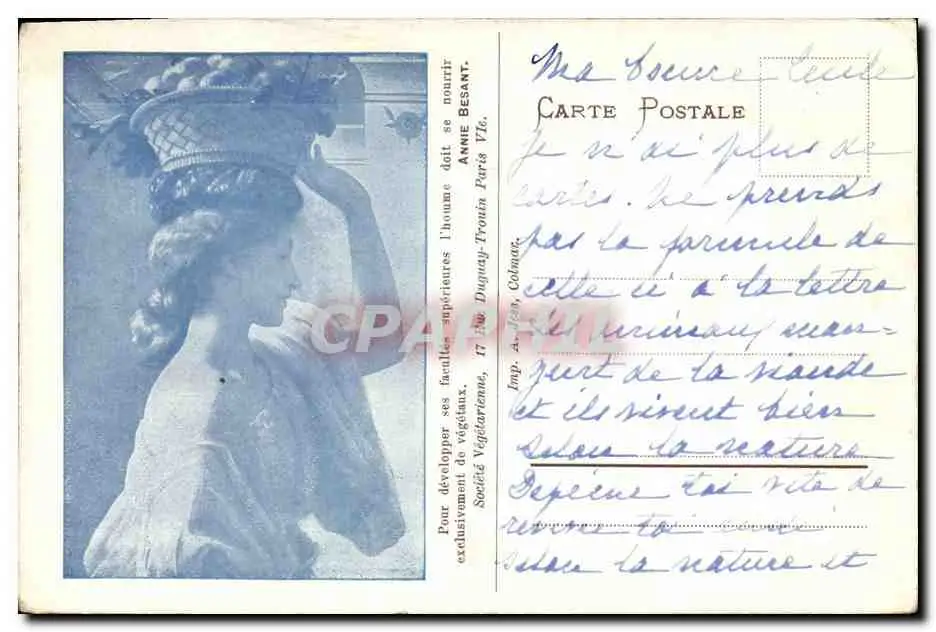 Pour développer ses facultés supérieures l'homme doit se nourrir
exclusivement de végétaux. ANNIE BESANT.
Société Végétarienne, 17 Rue Duguay-Trouin Paris VIe.
Imp. A. Jess, Colmar.
CARTE POSTALE
CPARTPHIL
Ma
Je n'ai plus de
cartes. Ne prends
pas la formule de
celle ci à la lettre
Les animaux man=
gent de la viande
et ils vivent bien
selon la nature
Depêche toi vite de
toi
selon la nature et